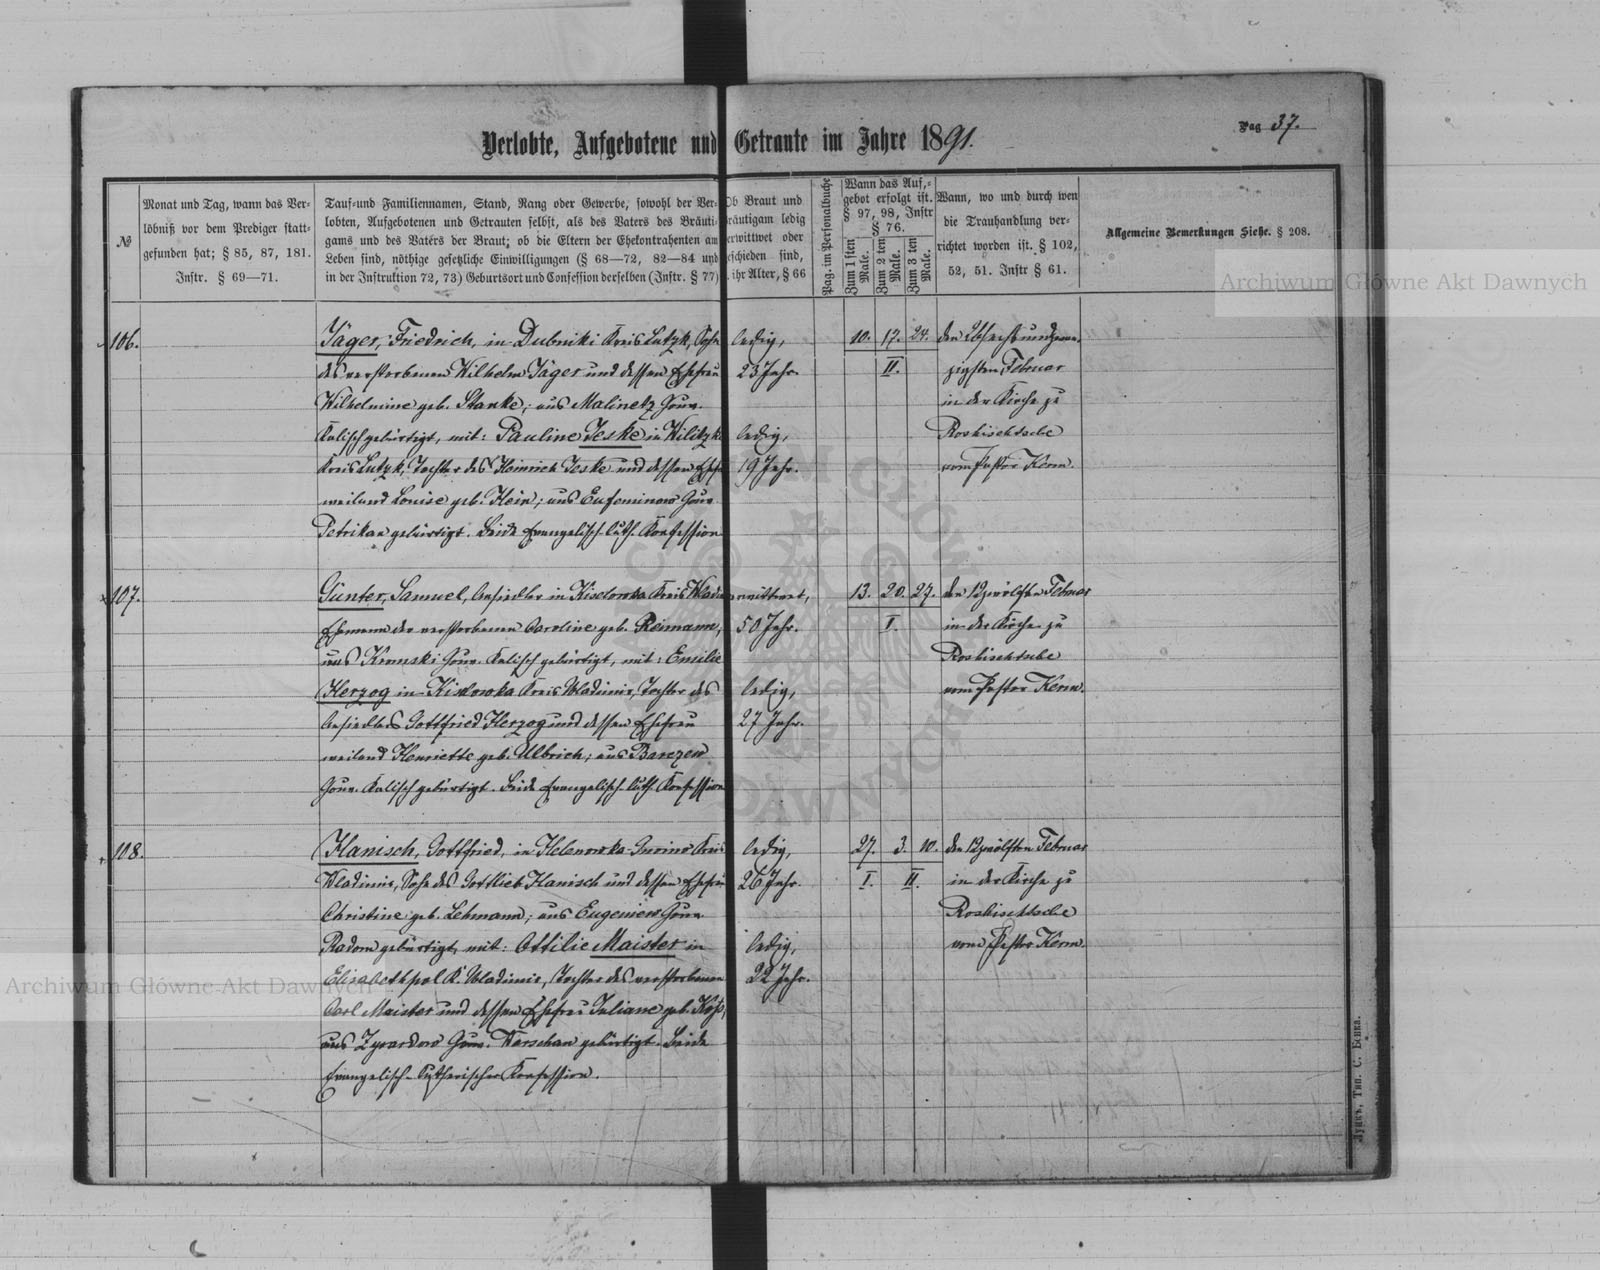 Verlobte, Aufgebotene und Getraute im Jahre 1891.
Pag 37.
№
Monat und Tag, wann das Ver-
löbniß vor dem Prediger statt-
gefunden hat; § 85, 87, 181.
Instr. § 69—71.
Tauf-und Familiennamen, Stand, Rang oder Gewerbe, sowohl der Ver-
lobten, Aufgebotenen und Getrauten selbst, als des Vaters des Bräuti-
gams und des Vaters der Braut; ob die Eltern der Ehekontrahenten am
Leben sind, nöthige gesetzliche Einwilligungen (§ 68—72, 82—84 und
in der Instruktion 72, 73) Geburtsort und Confession derselben (Instr. § 77)
Ob Braut und
Bräutigam ledig
verwittwet oder
geschieden sind,
ihr Alter, § 66
Pag. im Personalbuche
Wann das Auf-
gebot erfolgt ist.
§ 97, 98, Instr
§ 76.
Zum 1 sten Male.
Zum 2 ten Male.
Zum 3 ten Male.
Wann, wo und durch wen
die Trauhandlung ver-
richtet worden ist. § 102,
52, 51. Instr § 61.
Allgemeine Bemerkungen Siehe. § 208.
106.
Jäger, Friedrich, in Dubniki Kreis Lutzk, Sohn
des verstorbenen Wilhelm Jäger und dessen Ehefrau
Wilhelmine geb. Stanke; aus Malinetz Gouv.
Kalisch gebürtigt, mit: Pauline Jeske in Wilitzk
Kreis Lutzk, Tochter des Heinrich Jeske und dessen Ehefr
weiland Louise geb. Klein; aus Eufeminow Gouv.
Petrikau gebürtigt. Beide Evangelisch-luth. Konfession
ledig,
23 Jahr.
ledig,
19 Jahr.
10. 17. 24.
II.
den 26 sechsundzwan-
zigsten Februar
in der Kirche zu
Roshischtsche
vom Pastor Kerm.
107.
Günter, Samuel, Ansiedler in Kiselowka Kreis Wladi
Ehemann der verstorbenen Caroline geb. Reimann,
aus Kromski Gouv. Kalisch gebürtigt, mit: Emilie
Herzog in Kiselowka Kreis Wladimir, Tochter des
Ansiedlers Gottfried Herzog und dessen Ehefrau
weiland Henriette geb. Ulbrich; aus Barczew
Gouv. Kalisch gebürtigt. Beide Evangelisch-luth. Konfession
verwittwet,
50 Jahr.
ledig,
27 Jahr.
13. 20. 27.
I.
den 12 zwölften Februar
in der Kirche zu
Roshischtsche
vom Pastor Kerm.
108.
Hanisch, Gottfried, in Helenowka-Gurino Kreis
Wladimir, Sohn des Gottlieb Hanisch und dessen Ehefrau
Christine geb. Lehmann; aus Eugeniew Gouv.
Radom gebürtigt, mit: Ottilie Maister in
Elisabethpol K. Wladimir, Tochter des verstorbenen
Carl Maister und dessen Ehefrau Juliane geb.
aus Zyrardow Gouv. Warschau gebürtigt. Beide
Evangelisch-Lutherischer Konfession.
ledig,
26 Jahr.
ledig,
22 Jahr.
27. 3. 10.
I. II.
den 12 zwölften Februar
in der Kirche zu
Roshischtsche
vom Pastor Kerm.
Луцкъ, Тип. С. Бенка.
Archiwum Główne Akt Dawnych
Archiwum Główne Akt Dawnych